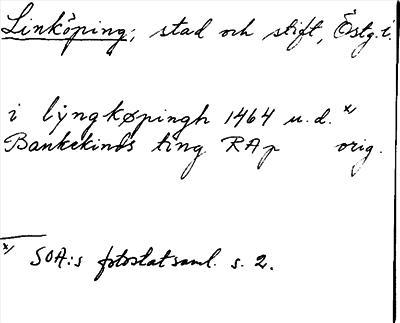 Linköping, stad och stift, Östg. i.
i lÿngkøpingh 1464 u.d. x/
Bankekinds ting RAp orig.
x/ SOA:s fotostatsaml. s. 2.